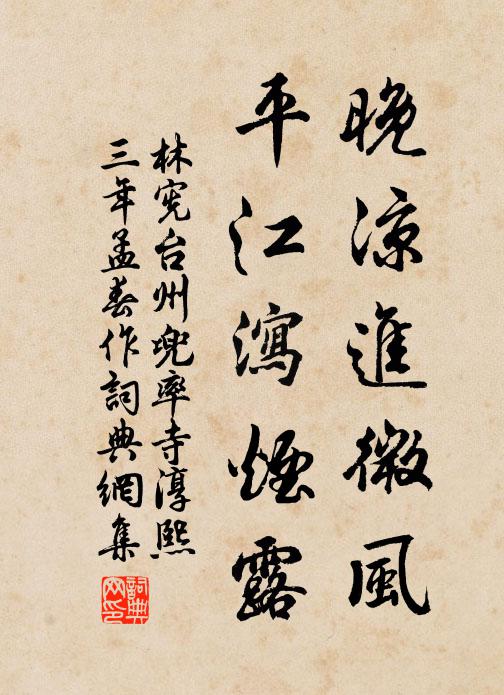 晚凉進微風
平江瀉煙露
林宪台州兜率寺淳熙
三年孟春作詞典網集
詞典
网印